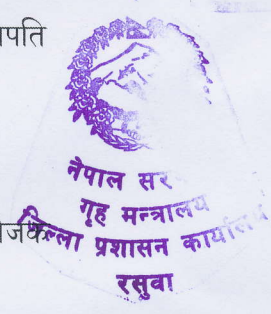 पति
नेपाल सर
गृह मन्त्रालय
जिल्ला प्रशासन कार्यालय
रसुवा